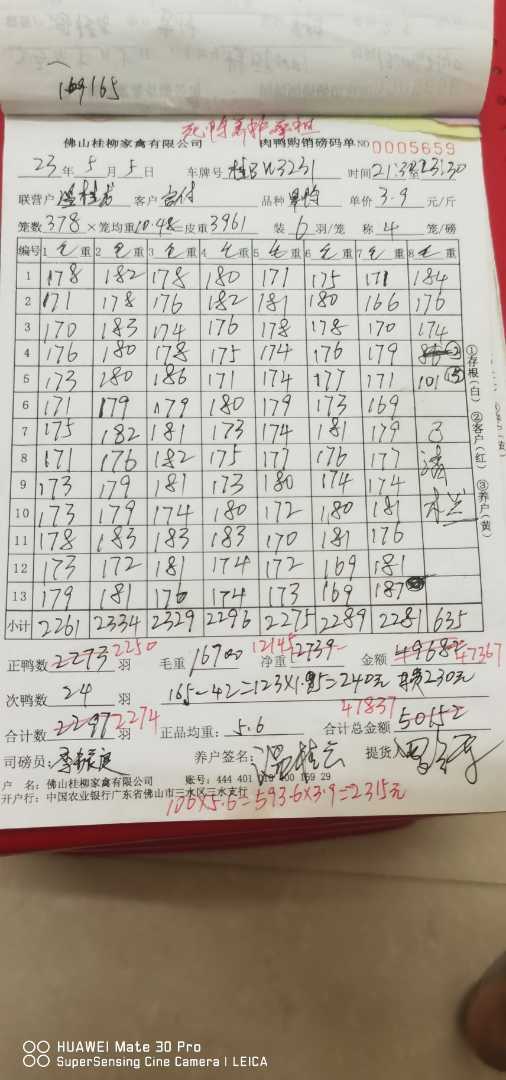 169165
佛山桂柳家禽有限公司 肉鸭购销磅码单 NO 0005659
23 年 5 月 5 日 车牌号 时间 21:30至23:30
联营户 客户 品种 单价 3.9 元/斤
笼数 378 × 笼均重 10.48= 皮重 3961 装 6 羽/笼 称 4 笼/磅
编号 1 毛重 2 毛重 3 毛重 4 毛重 5 毛重 6 毛重 7 毛重 8 毛重
1 178 182 178 180 171 175 171 184
2 171 178 176 182 181 180 166 176
3 170 183 174 176 178 178 170 174
4 176 180 178 175 174 176 179
5 173 180 186 171 174 177 171 101
6 171 179 179 180 179 173 169
7 175 182 181 173 174 181 179
8 171 176 182 175 177 176 177
9 173 179 181 173 180 174 174
10 173 179 174 180 172 180 181
11 178 183 183 183 170 181 176
12 173 172 181 174 172 169 181
13 179 181 176 174 173 169 187
小计 2261 2334 2329 2296 2275 2289 2281 635
①存根(白) ②客户(红) ③养户(黄)
正鸭数 2273 2250 羽 毛重 16700 净重 12145 12739 金额 49682 47367
次鸭数 24 羽 165-42=123×1.95=240元 230元
合计数 2297 2274 羽 正品均重: 5.6 合计总金额 47837 50152
司磅员: 养户签名: 提货人
户 名: 佛山桂柳家禽有限公司 账号: 444 401 010 400 159 29
开户行: 中国农业银行广东省佛山市三水区三水支行
106×5.6=593.6×3.9=2315元
HUAWEI Mate 30 Pro
SuperSensing Cine Camera | LEICA